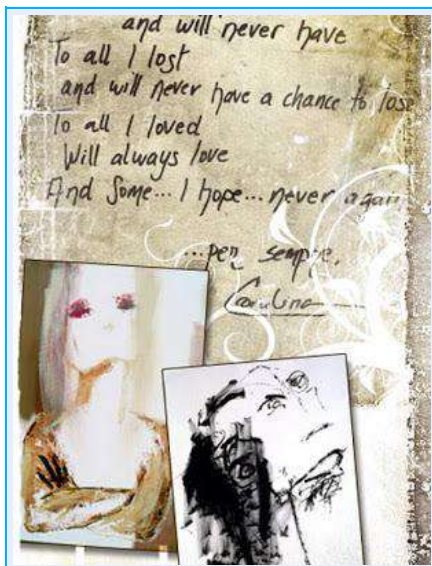 and will never have
To all I lost
and will never have a chance to lose
To all I loved
Will always love
And Some... I hope... never again
...per sempre.
Carolina